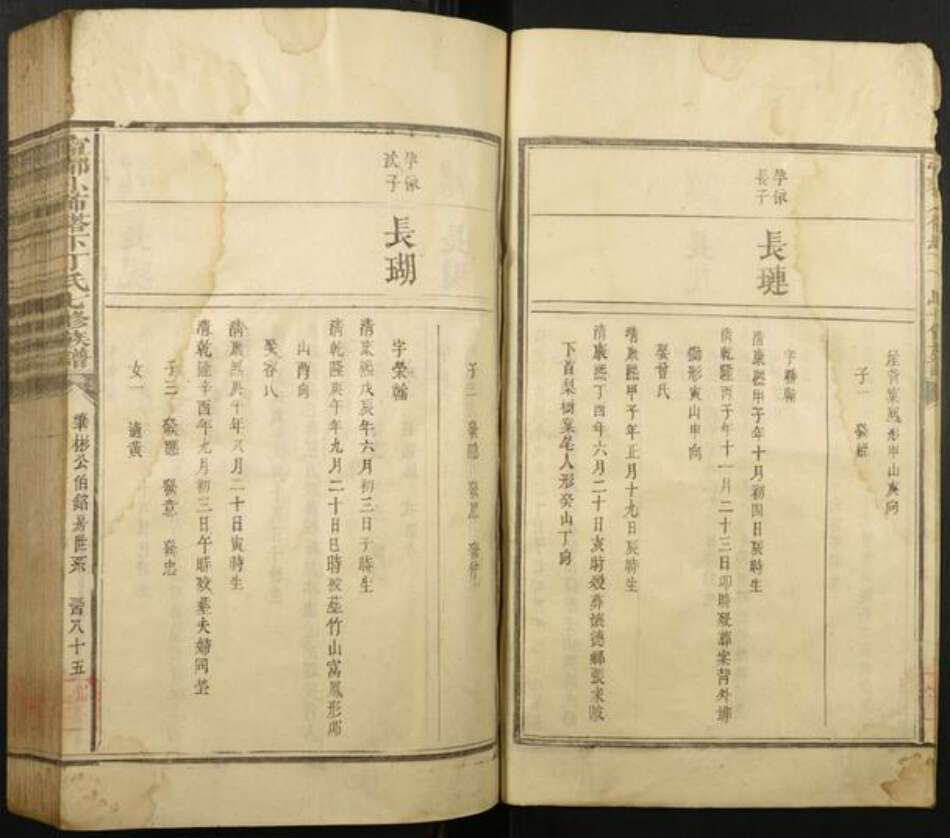 塋背葉鳳形甲山庚向
子一 發
孕欽
長子
長璉
字聯
清康熙甲子年十月初四日辰時生
清乾隆丙子年十一月二十三日卯時歿葬案背外
形寅山申向
娶曾氏
清康熙甲子年正月十九日辰時生
清康熙丁酉年六月二十日亥時歿葬懷德鄉張末陂
下首梨樹葉笔人形癸山丁向
子三 發
次子
長瑚
字榮
清康熙戊辰年六月初三日子時生
清乾隆庚午年九月二十日巳時歿葬竹山窩鳳形
山酉向
娶谷氏
清康熙庚午年八月二十日寅時生
清乾隆辛酉年九月初三日午時歿葬夫婦同塋
子三 發 發意 發忠
女一 適黃
雩都小布塔下丁氏七修族譜
華彬公伯銘房世系 晉八十五